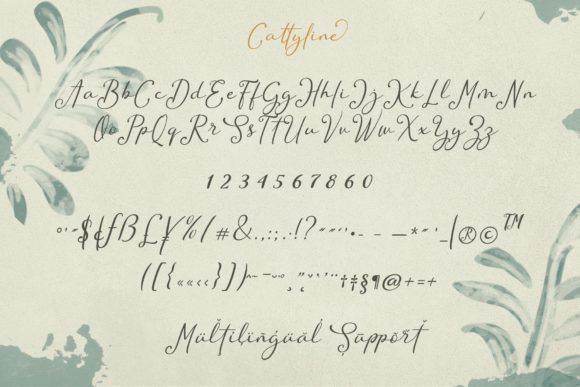 Cattyline
AaBbCcDdEeFfGgHhIiJjKkLlMmNn
OoPpQqRrSsTtUuVvWwXxYyZz
1234567860
$¢ƒß£¥%/#&.,:;.·!?*_|®©™
([{««‹‹{])†‡§¶@+=+
Mültilïñgüäl Sappörť